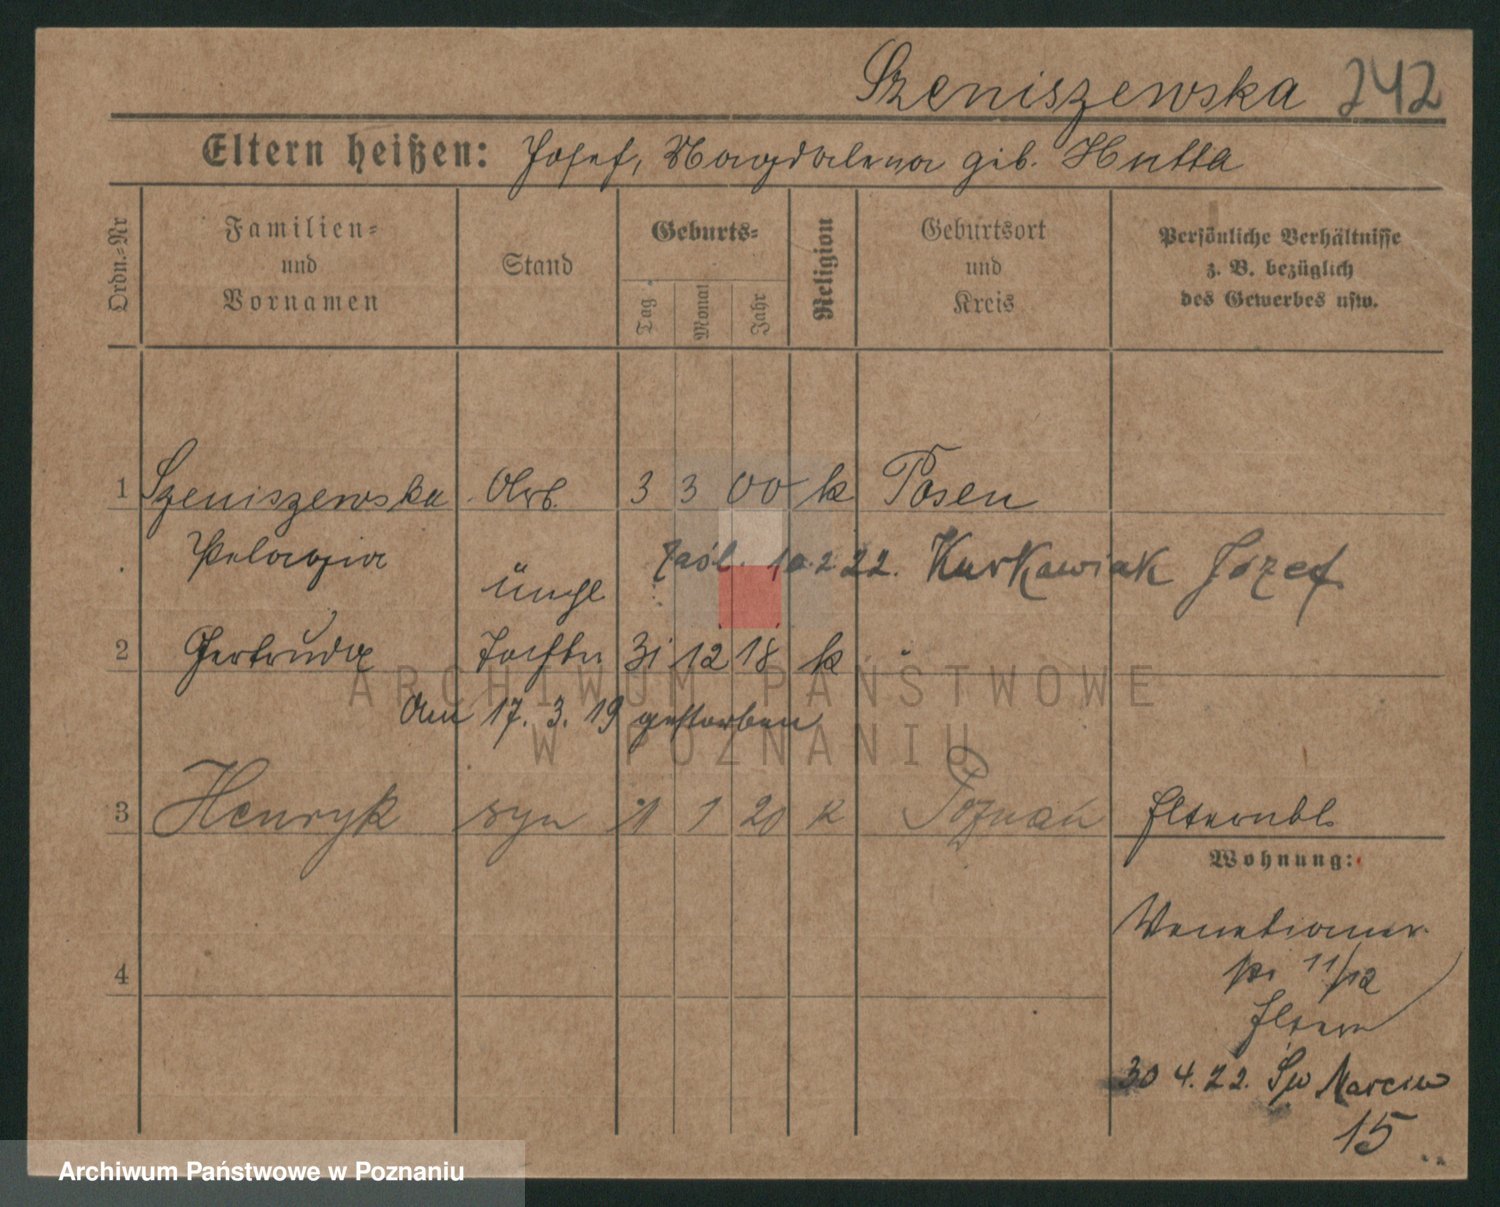 Szeniszewska 242
Eltern heißen: Josef, Magdalena geb. Hutta
Ordn.-Nr
Familien- und Vornamen
Stand
Geburts-
Tag
Monat
Jahr
Religion
Geburtsort und Kreis
Persönliche Verhältnisse z. B. bezüglich des Gewerbes usw.
1 Szeniszewska Arb. 3 3 00 k Posen
Pelagia
zaśl. 10.2.22. Kurkawiak Józef
unehl
2 Gertruda Tochter 31 12 18 k
Am 17. 3. 19 gestorben
3 Henryk syn 1 1 20 k Poznań
Elternbl.
Wohnung:
Venetianer
11/12
Eltern
4
30 4. 22. Św Marcin
15
ARCHIWUM PAŃSTWOWE
W POZNANIU
Archiwum Państwowe w Poznaniu